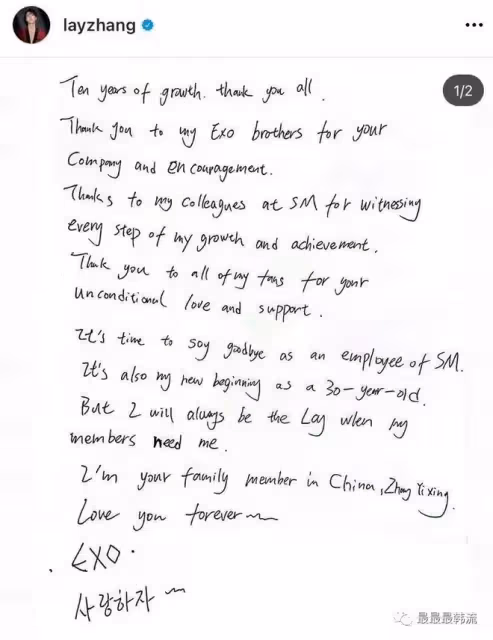 layzhang
1/2
Ten years of growth. thank you all.
Thank you to my Exo brothers for your
Company and encouragement.
Thanks to my colleagues at SM for witnessing
every step of my growth and achievement.
Thank you to all of my fans for your
unconditional love and support.
It's time to say goodbye as an employee of SM.
It's also my new beginning as a 30-year-old.
But I will always be the Lay when my
members need me.
I'm your family member in China, Zhang Yixing.
Love you forever~
EXO.
사랑하자~
最最最韩流